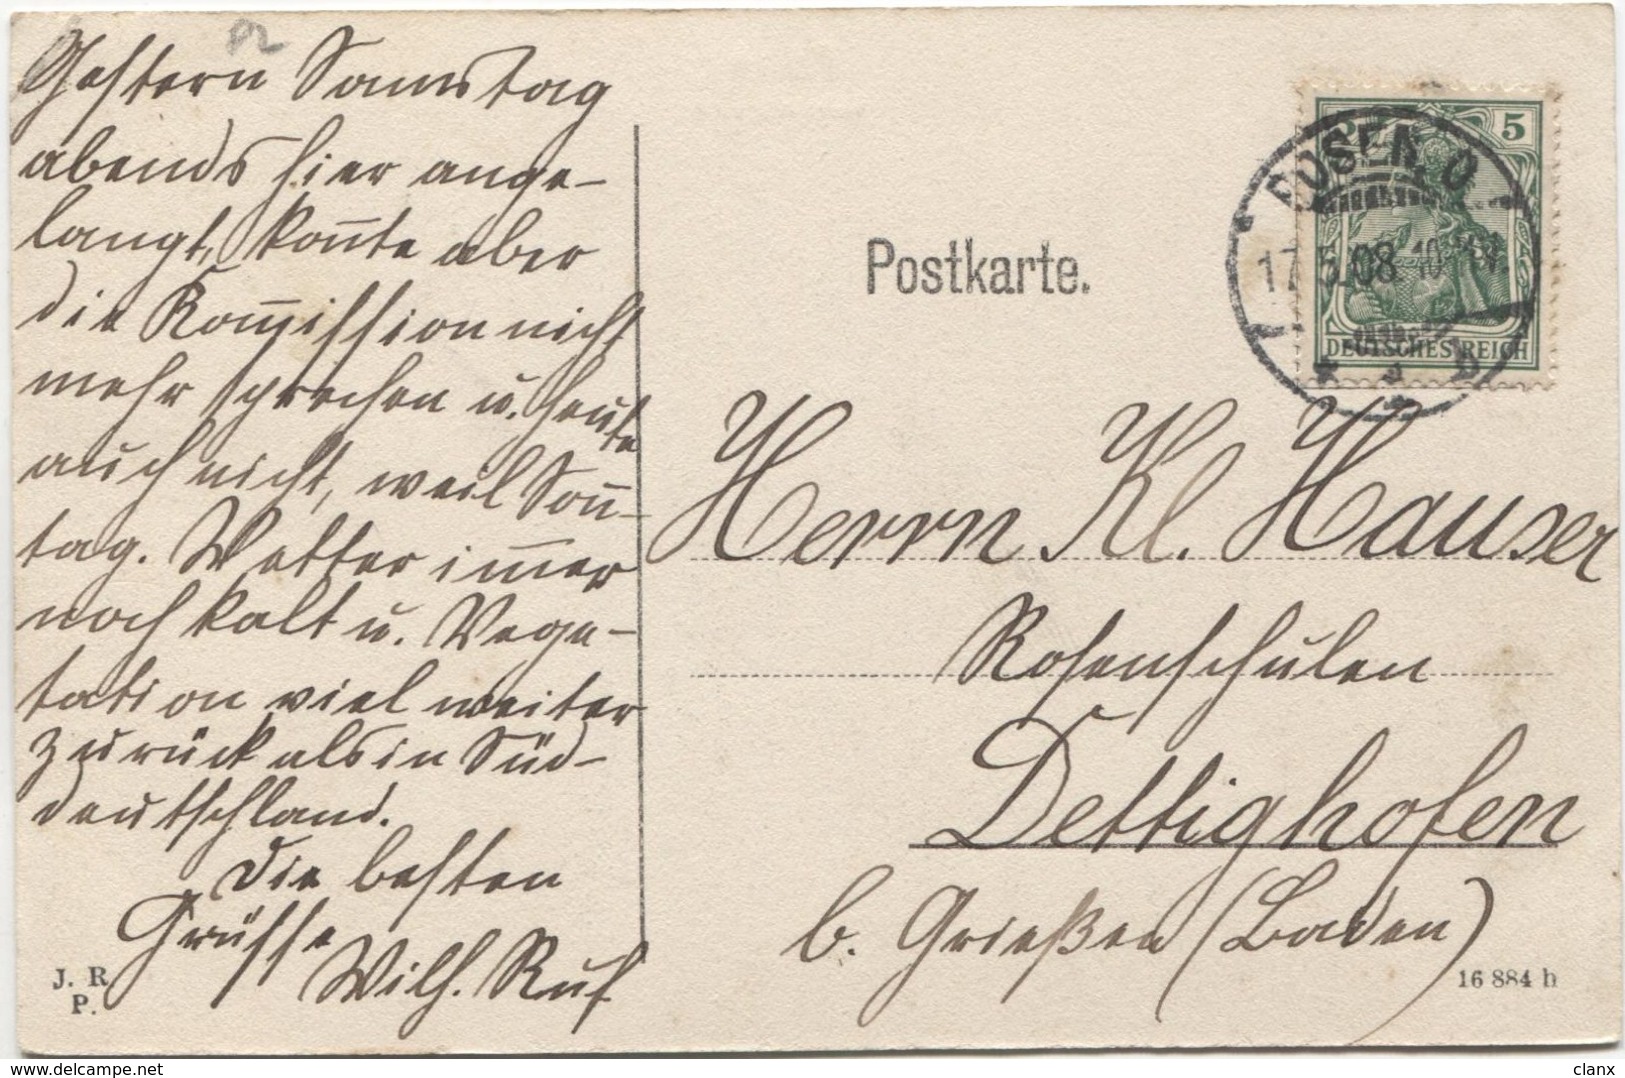 Gestern Samstag
abends hier ange-
langt, konnte aber
die Kommission nicht
mehr sprechen u. heute
auch nicht, weil Sonn-
tag. Wetter immer
noch kalt u. Vege-
tation viel weiter
zurück als in Süd-
deutschland.
Die besten
Grüsse
Wilh. Ruf
J. R.
P.
Postkarte.
5
DEUTSCHES REICH
POSEN O
17.5.08 10-11
b
Herrn Kl. Hauser
Rosenschulen
Dettighofen
b. Grießen (Baden)
16 884 b
clanx
delcampe.net